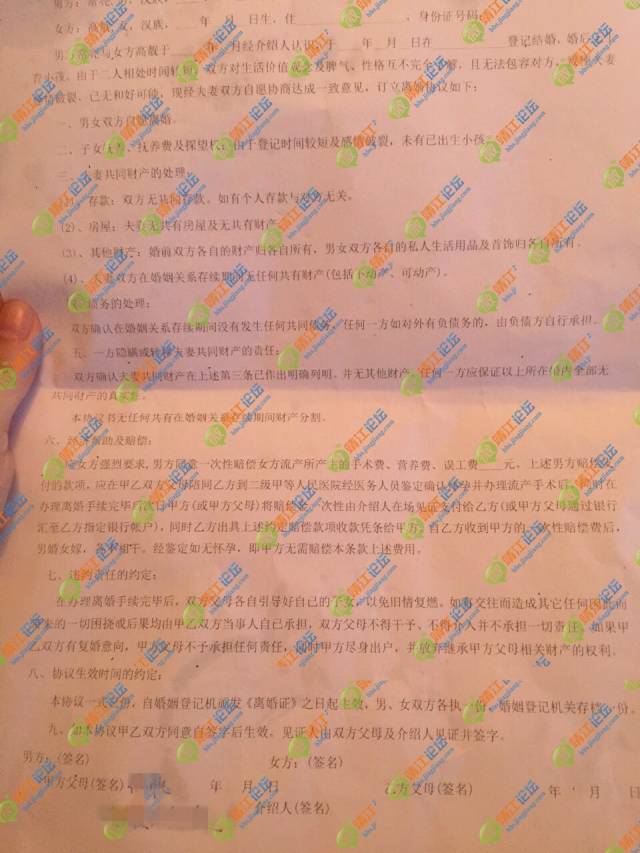 男方：常亮，男，汉族，
女方：高靓，女，汉族， 年 月 日生，住 ，身份证号码：
男方 与女方高靓于 年 月经介绍人认识，于 年 月 日在 登记结婚，婚后
养小孩。由于二人相处时间较短，双方对生活价值 及脾气、性格互不完全 解，且无法包容对方， 夫妻
感情破裂，已无和好可能，现经夫妻双方自愿协商达成一致意见，订立离婚协议如下：
一、男女双方自愿离婚。
二、子女抚养、抚养费及探望权：由于登记时间较短及感情破裂，未有已出生小孩。
三、夫妻共同财产的处理：
(1)、存款：双方无共同存款。如有个人存款与对方无关。
(2)、房屋：夫妻无共有房屋及无共有财产。
(3)、其他财产：婚前双方各自的财产归各自所有，男女双方各自的私人生活用品及首饰归各自所有。
(4)、夫妻双方在婚姻关系存续期间无任何共有财产(包括不动产、可动产)。
四、债务的处理：
双方确认在婚姻关系存续期间没有发生任何共同债务，任何一方如对外有负债务的，由负债方自行承担。
五、一方隐瞒或转移夫妻共同财产的责任：
双方确认夫妻共同财产在上述第三条已作出明确列明。并无其他财产，任何一方应保证以上所在价内全部无
共同财产的真实性。
本协议书无任何共有在婚姻关系存续期间财产分割。
六、经济帮助及赔偿：
在女方强烈要求，男方同意一次性赔偿女方流产所产生的手术费、营养费、误工费 元。上述男方赔偿支
付的款项，应在甲乙双方父母陪同乙方到二级甲等人民医院经医务人员鉴定确认怀孕并办理流产手术后，同时在
办理离婚手续完毕后次日甲方(或甲方父母)将赔偿金一次性由介绍人在场见证支付给乙方(或甲方父母通过银行
汇至乙方指定银行帐户)，同时乙方出具上述约定赔偿款项收款凭条给甲方；自乙方收到甲方的一次性赔偿费后，
男婚女嫁，互不相干。经鉴定如无怀孕，即甲方无需赔偿本条款上述费用。
七、违约责任的约定：
在办理离婚手续完毕后，双方父母各自引导好自己的子女，以免旧情复燃。如再交往而造成其它任何因此而
带来的一切困挠或后果均由甲乙双方当事人自已承担，双方父母不得干予、不得介入并不承担一切责任。如果甲
乙双方有复婚意向，甲方父母不予承担任何责任，同时甲方尽身出户，并放弃继承甲方父母相关财产的权利。
八、协议生效时间的约定：
本协议一式 份，自婚姻登记机 颁发《离婚证》之日起生效，男、女双方各执一份，婚姻登记机关存档一份。
九、如本协议甲乙双方同意自签字后生效。见证人由双方父母及介绍人见证并签字。
男方：(签名) 女方：(签名)
甲方父母(签名) 年 月 日 乙方父母(签名) 年 月 日
介绍人(签名)
靖江论坛
bbs.jingjiang.com